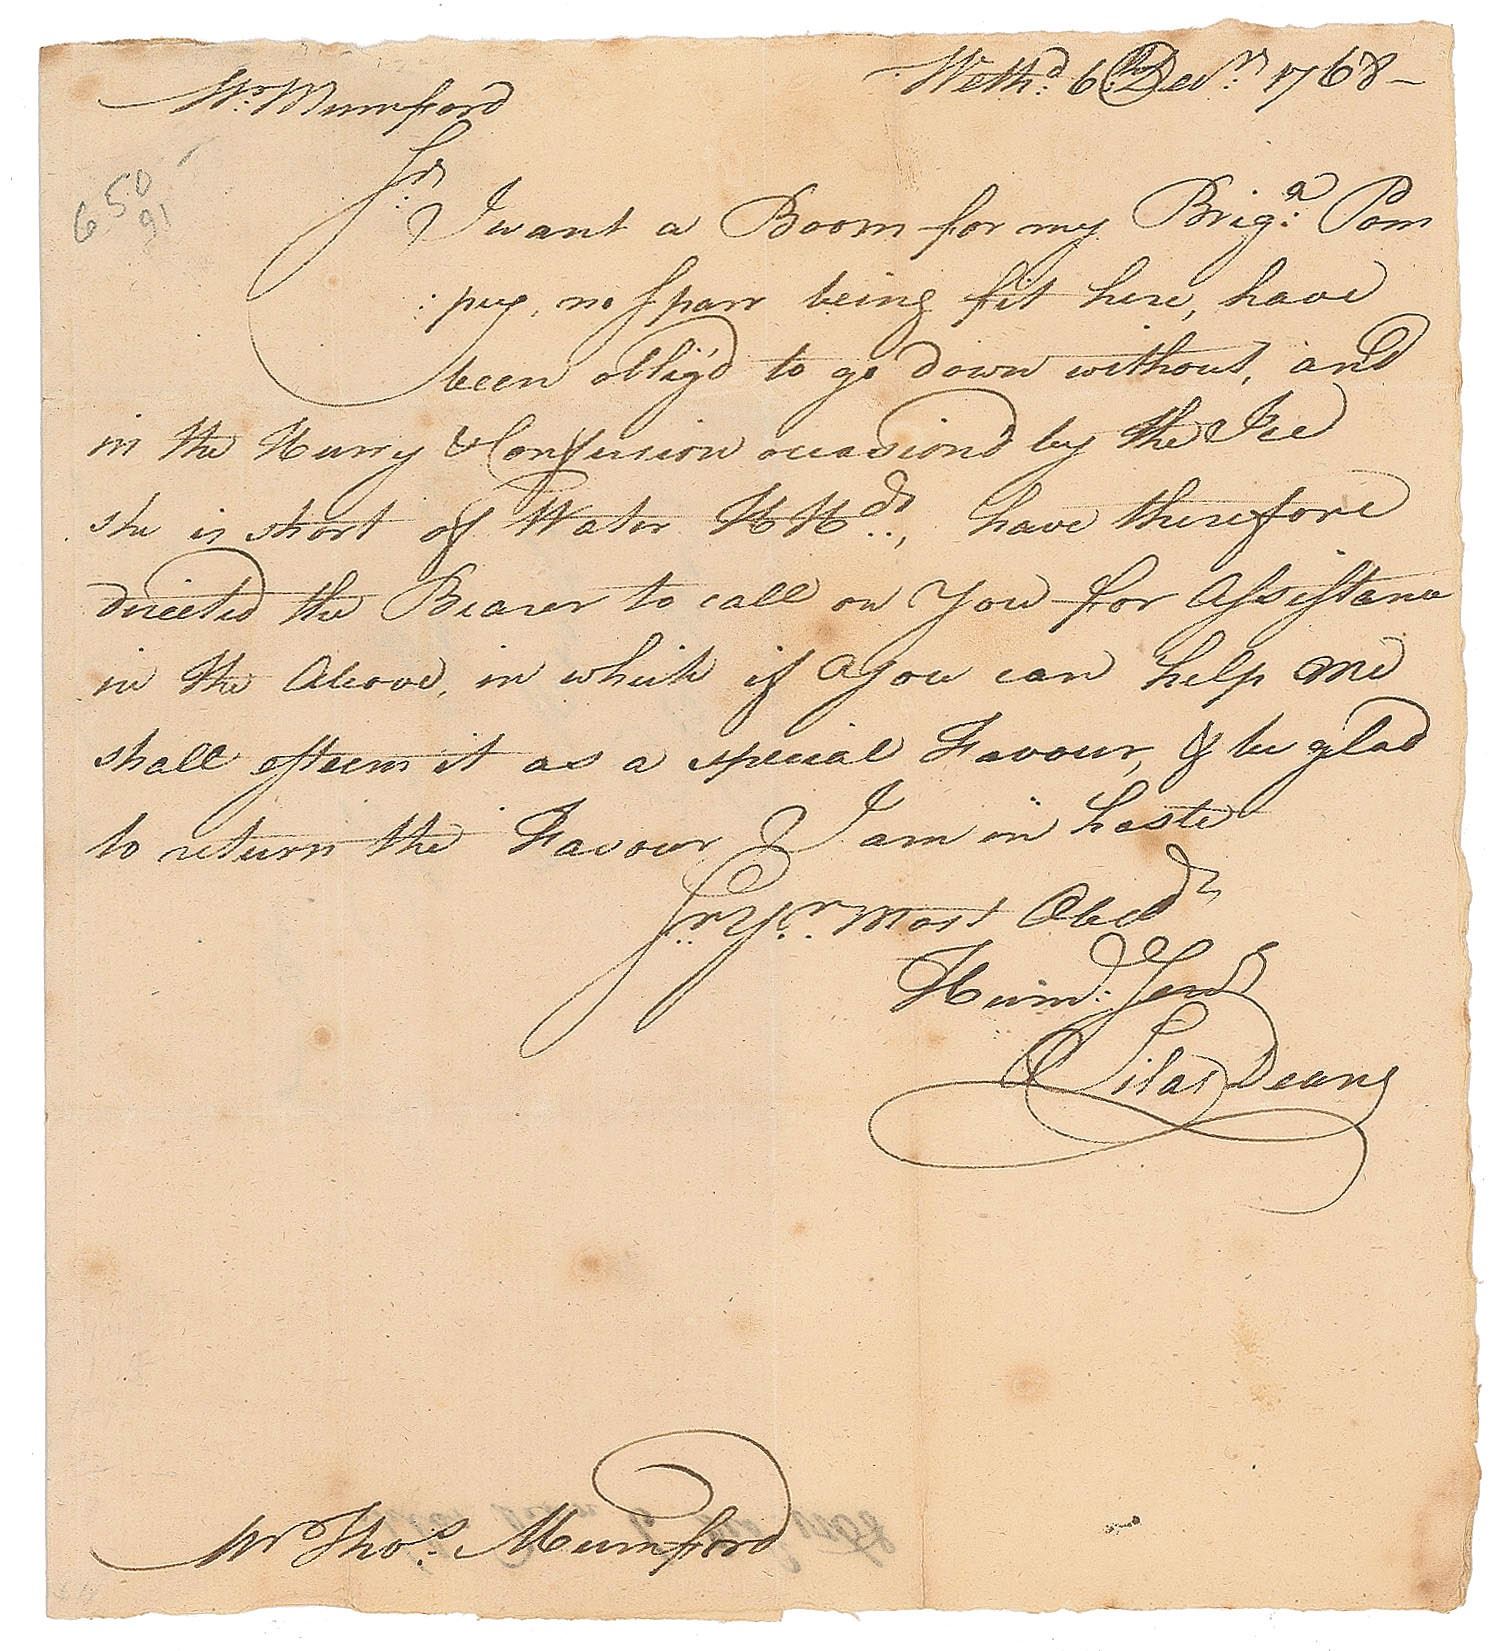 Wethd. 6th. Decr. 1768 –
Mr. Mumford
Sr.
I want a Boom for my Briga. Pom
:pey, no Sparr being fit here, have
been oblig'd to go down without, and
in the Hurry & Confusion occasion'd by the Ice
she is short of Water HHds., have therefore
directed the Bearer to call on You for Assistance
in the Above, in which if You can help me
shall esteem it as a special Favour, & be glad
to return the Favour I am in haste
Sr. Yr. Most Obedt
Humb. Servt
Silas Deane
Mr Thos. Mumford
650
91